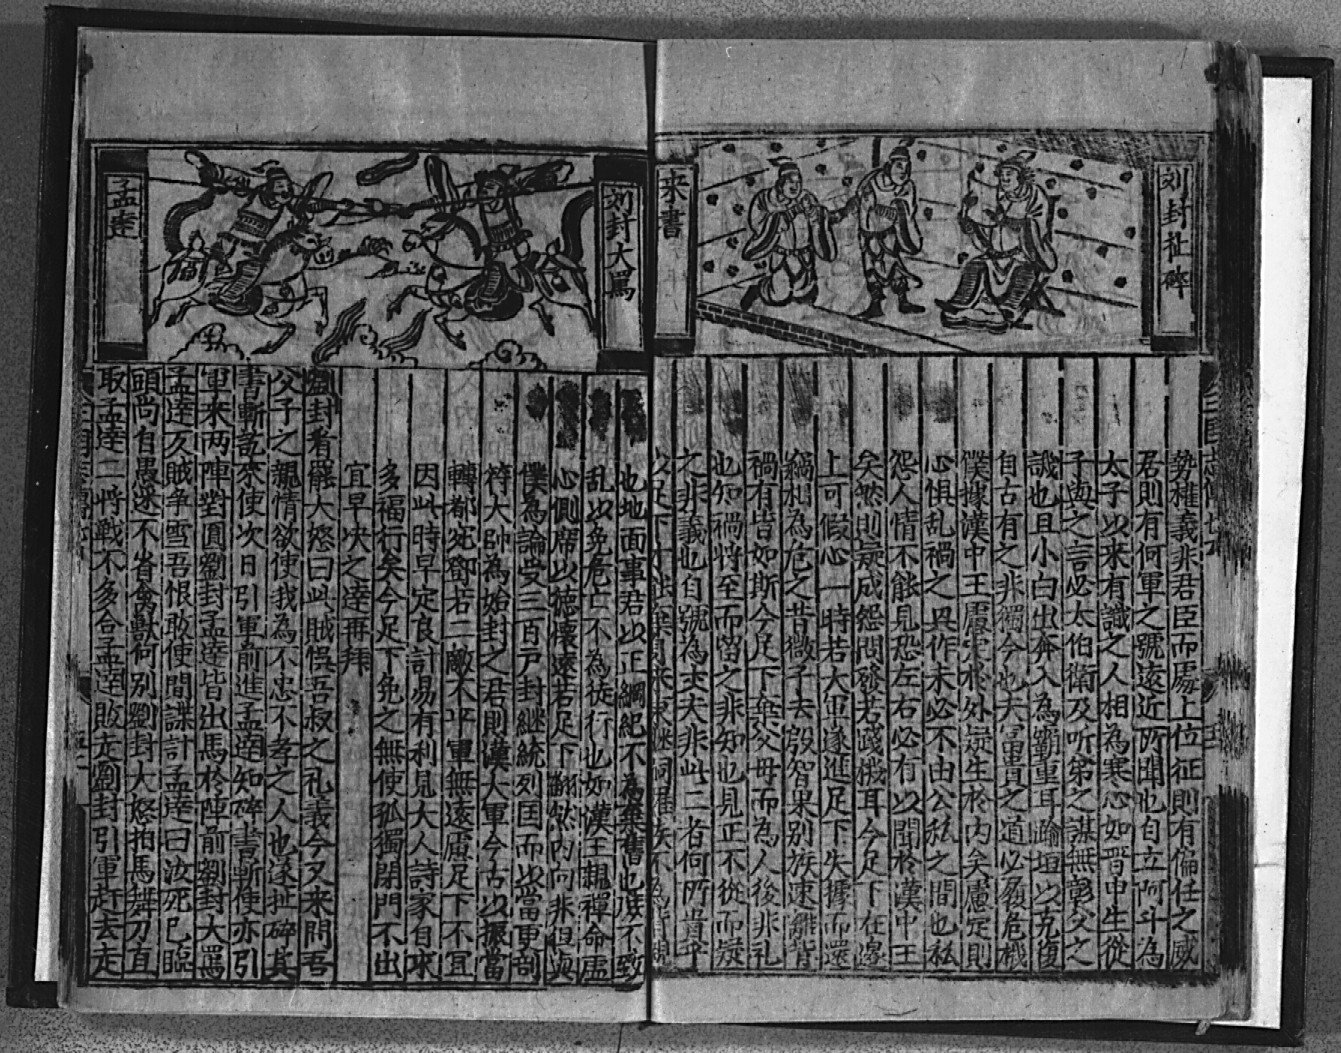 刘封扯碎
来書
勢權義非君臣而處上位征則有偏任之威
居則有何軍之號遠近所聞也自立阿斗為
太子以來有識之人相為寒心如晉中生從
子輿之言必太伯衛及听弟之謀無彰父之
譏也且小白出奔入為霸重耳踰垣以克復
自古有之非獨今也夫富貴之道必履危機
僕據漢中王慮定於外疑生於内矣慮定則
心惧乱禍之興作未必不由公私之間也私
怨人情不能見恐左右必有以聞於漢中王
矣然則疑成怨聞發若踐機耳今足下在邊
上可假心一時若大軍遂進足下失據而還
竊相為危之昔微子去殷智果別族違難背
禍有皆如斯今足下棄父母而為人後非礼
也知禍將至而留之非知也見正不從而疑
之非義也自號為丈夫非此二者何所貴乎
以足下
刘封大罵
孟達
也地面事君以正綱紀不為棄舊也怒不致
乱以免危亡不為徒行也如漢王親禅命虛
心側席以徳懷遠若足下翻然内向非但與
僕為論受三百戸封継統列国而以當更剖
符大邦為始封之君則漢大軍今古以振當
轉都宛鄧若二敵不平軍無遠慮足下不宜
因此時早定良計易有利見大人詩家自求
多福行矣今足下免之無使孤獨閉門不出
宜早决之達再拜
劉封看罷大怒曰此賊悞吾叔之礼義今又来間吾
父子之親情欲使我為不忠不孝之人也遂扯碎其
書斬訖來使次日引軍前進孟達知碎書斬使亦引
軍來两陣對圓劉封孟達皆出馬於陣前劉封大罵
孟達反賊争雪吾恨敢使間諜計孟達曰汝死已臨
頭尚自愚迷不省禽獸何別劉封大怒拍馬舞刀直
取孟達二將戰不多合孟達敗走劉封引軍赶去走